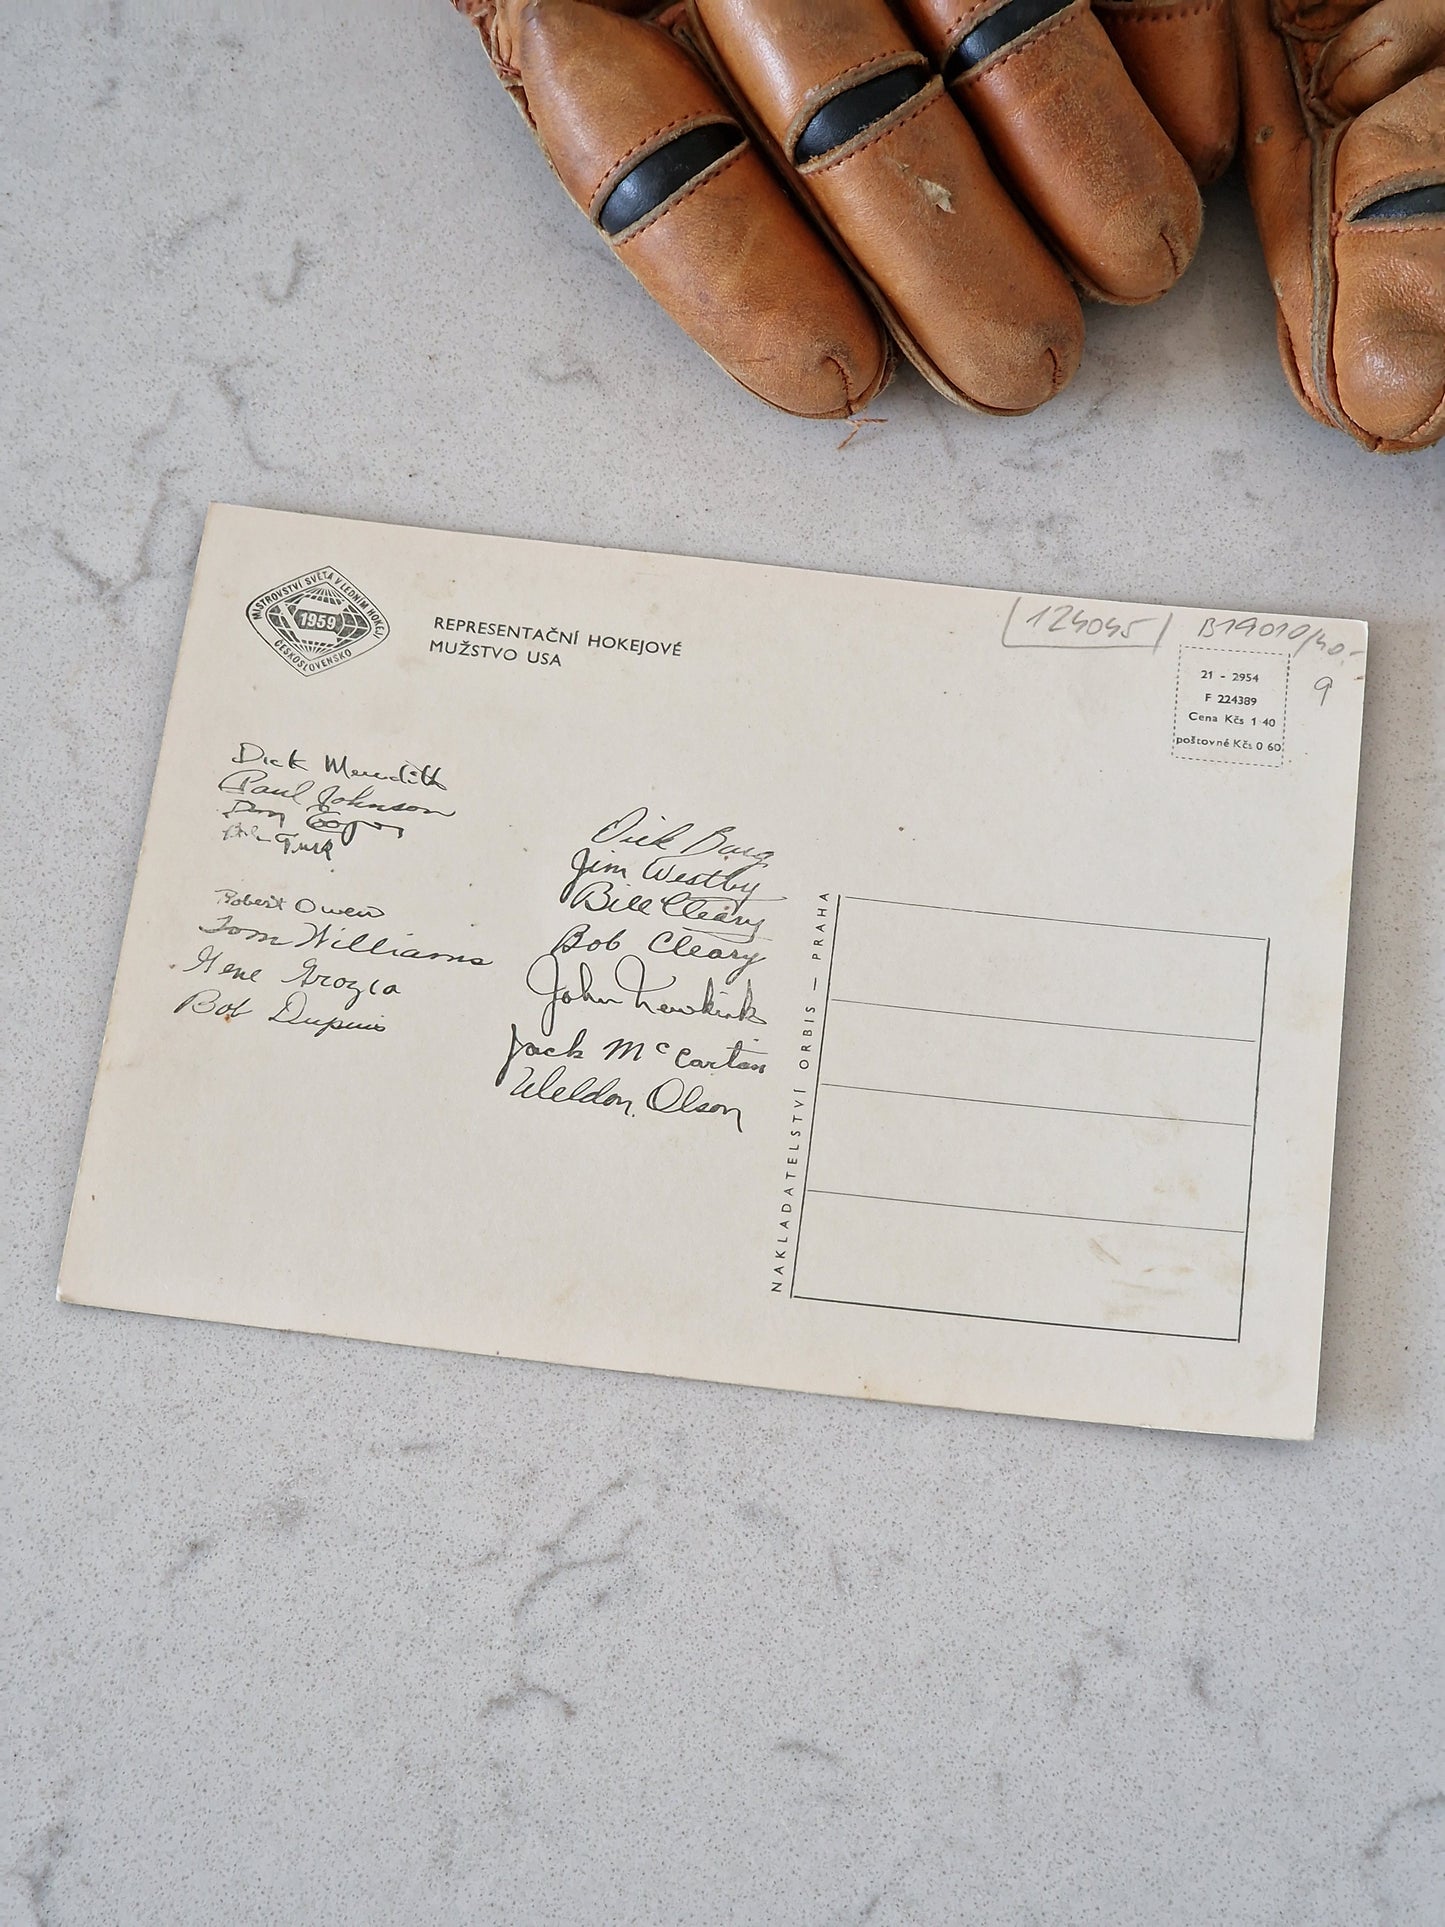 MISTROVSTVÍ SVĚTA V LEDNÍM HOKEJI
1959
ČESKOSLOVENSKO
REPRESENTAČNÍ HOKEJOVÉ
MUŽSTVO USA
124045
B19010/40.-
9
21 - 2954
F 224389
Cena Kčs 1 40
poštovné Kčs 0 60
Dick Meredith
Paul Johnson
Bob Turk
Robert Owen
Tom Williams
Gene Grazia
Bob Dupuis
Dick Burg
Jim Westby
Bill Cleary
Bob Cleary
John Newkirk
Jack McCartan
Weldon Olson
NAKLADATELSTVÍ ORBIS — PRAHA